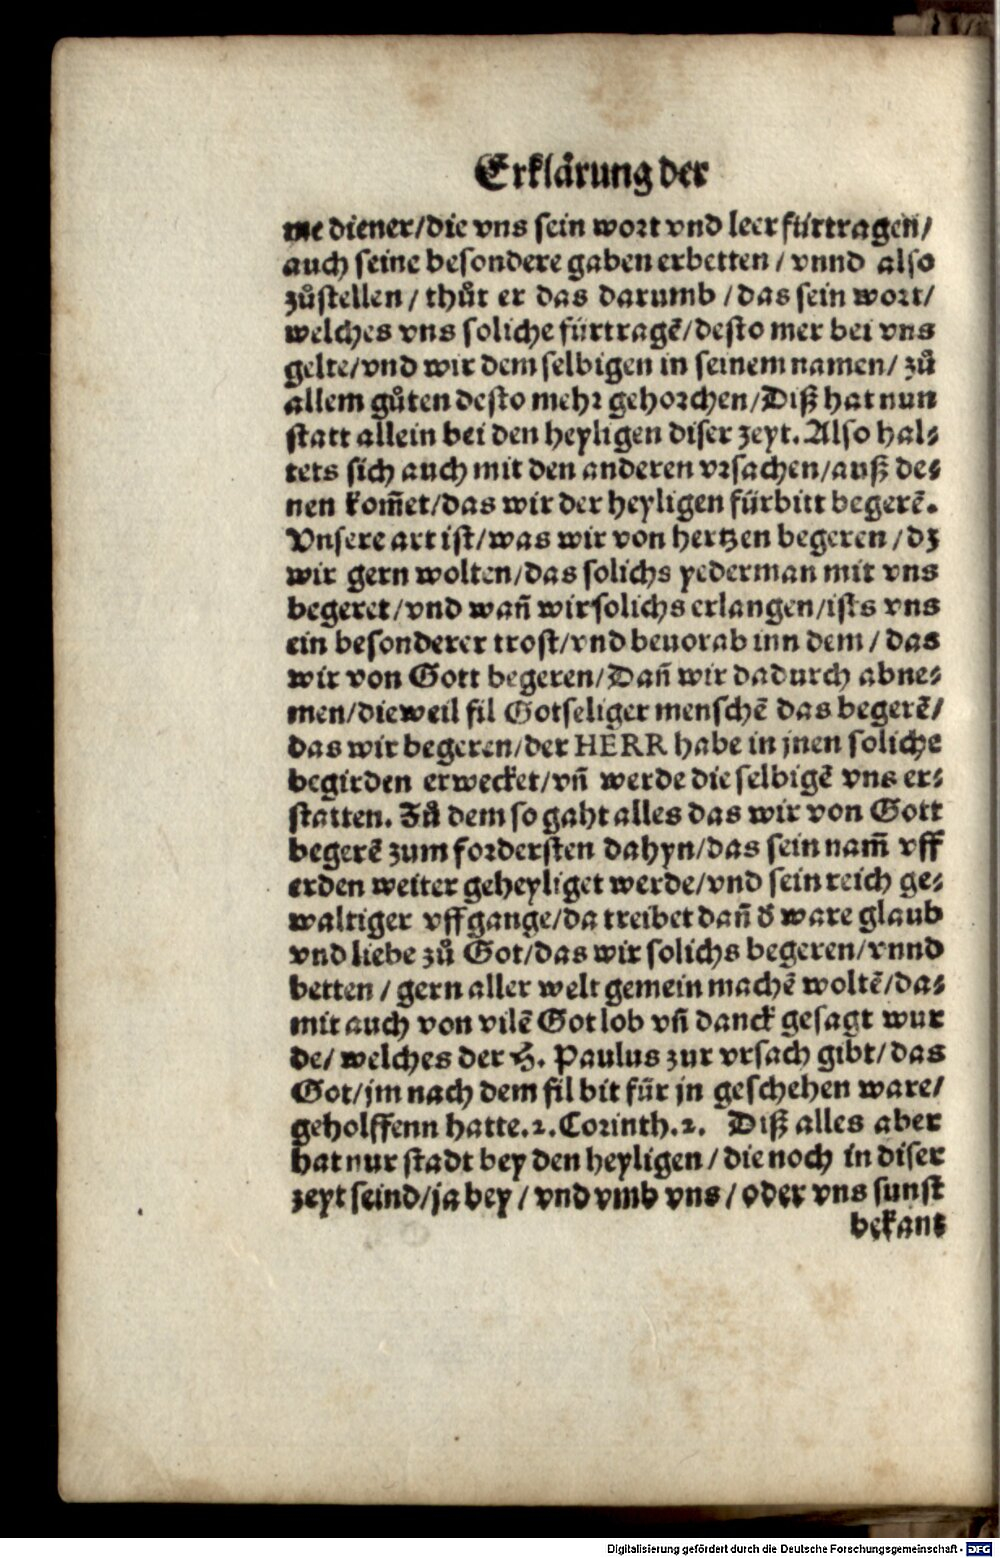 Erklårung der
me diener/die vns sein wort vnd leer fürtragen/
auch seine besondere gaben erbetten / vnnd also
zůstellen / thůt er das darumb / das sein wort/
welches vns soliche fürtragẽ/desto mer bei vns
gelte/vnd wir dem selbigen in seinem namen/ zů
allem gůten desto mehr gehorchen/Diß hat nun
statt allein bei den heyligen diser zeyt. Also hal⸗
tets sich auch mit den anderen vrsachen/auß de⸗
nen kom̃et/das wir der heyligen fürbitt begerẽ.
Vnsere art ist/was wir von hertzen begeren / dz
wir gern wolten/das solichs yederman mit vns
begeret/vnd wañ wir solichs erlangen/ists vns
ein besonderer trost/vnd beuorab inn dem / das
wir von Gott begeren/Dañ wir dadurch abne⸗
men/dieweil fil Gotseliger menschẽ das begerẽ/
das wir begeren/der HERR habe in jnen soliche
begirden erwecket/vñ werde die selbigẽ vns er⸗
statten. Zů dem so gaht alles das wir von Gott
begerẽ zum fordersten dahyn/das sein nam̃ vff
erden weiter geheyliget werde/vnd sein reich ge⸗
waltiger vffgange/da treibet dañ d̃ ware glaub
vnd liebe zů Got/das wir solichs begeren/vnnd
betten / gern aller welt gemein machẽ woltẽ/da⸗
mit auch von vilẽ Got lob vñ danck gesagt wur
de/ welches der H. Paulus zur vrsach gibt/ das
Got/jm nach dem fil bit für jn geschehen ware/
geholffenn hatte.2.Corinth.2. Diß alles aber
hat nur stadt bey den heyligen / die noch in diser
zeyt seind/ja bey / vnd vmb vns / oder vns sunst
bekant
Digitalisierung gefördert durch die Deutsche Forschungsgemeinschaft - DFG